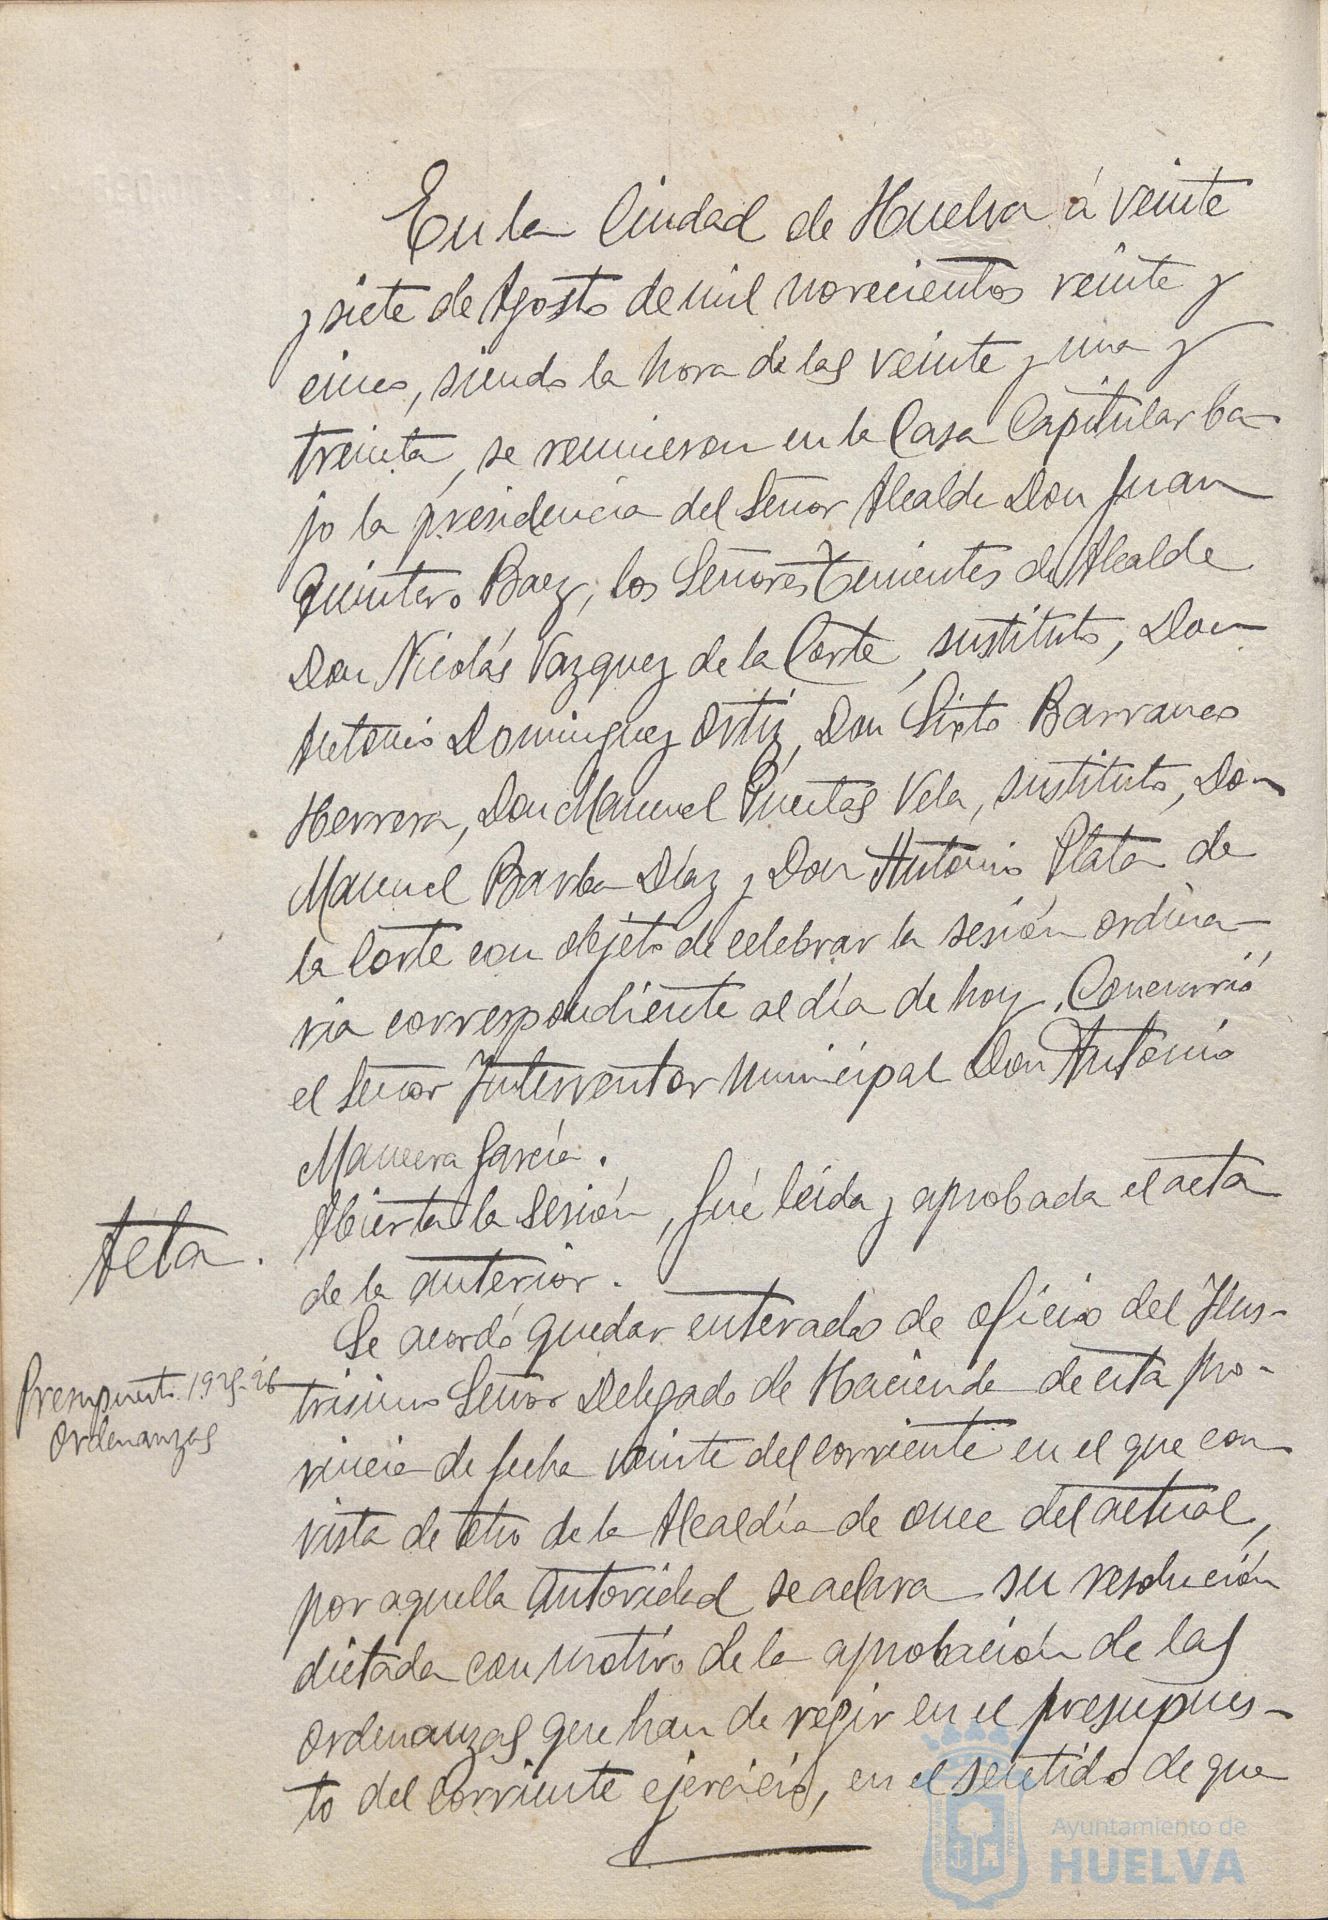 En la Ciudad de Huelva á veinte
y siete de Agosto de mil novecientos veinte y
cinco, siendo la hora de las veinte y una y
treinta, se reunieron en la Casa Capitular ba-
jo la presidencia del Señor Alcalde Don Juan
Quintero Baez, los Señores Tenientes de Alcalde
Don Nicolás Vazquez de la Corte, sustituto, Don
Antonio Dominguez Ortiz, Don Sixto Barranco
Herrera, Don Manuel Puertas Vela, sustituto, Don
Manuel Barba Díaz y Don Antonio Plata de
la Corte con objeto de celebrar la sesión ordina-
ria correspondiente al día de hoy. Concurrió
el Señor Interventor Municipal Don Antonio
Mancera García.
Acta.
Abierta la Sesión, fué leída y aprobada el acta
de la anterior.
Presupuesto 1925-26
Ordenanzas
Se acordó quedar enterado de oficio del Ilus-
trisimo Señor Delegado de Hacienda de esta pro-
vincia de fecha veinte del corriente en el que con
vista de otro de la Alcaldía de once del actual,
por aquella Autoridad se aclara su resolución
dictada con motivo de la aprobación de las
Ordenanzas que han de regir en el presupues-
to del Corriente ejercicio, en el sentido de que
Ayuntamiento de
HUELVA